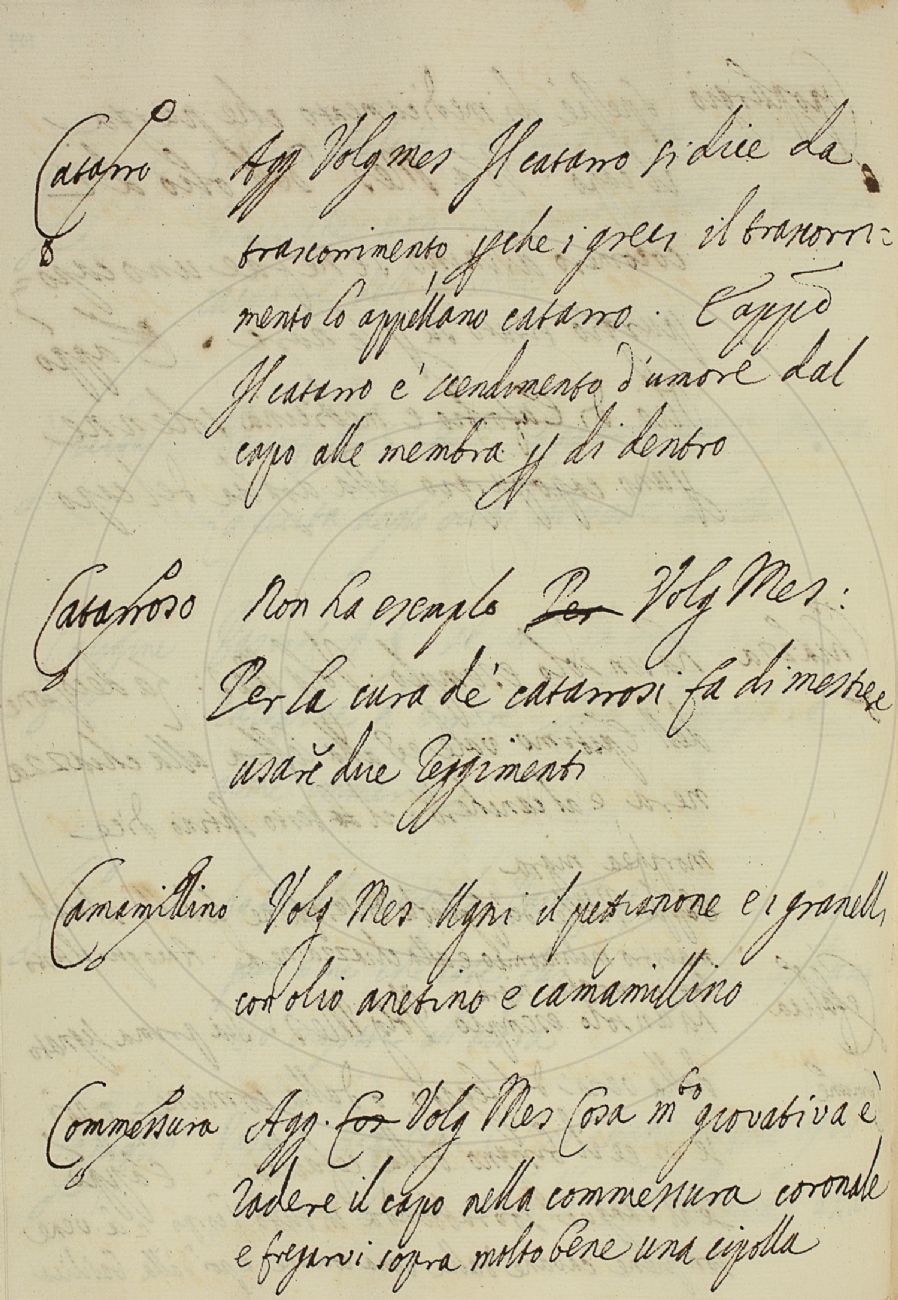 Catarro Agg Volg mes Il catarro si dice da
trascorrimento ꝑche i greci il trascorri=
mento lo appellano catarro. E app.o
Il catarro e' scendimento d'umore dal
capo alle membra ꝑ di dentro
Catarroso Non ha esemplo Per Volg Mes:
Per la cura de' catarrosi fa di mestiere
usare due reggimenti
Camamillino Volg Mes Ugni il pettignone e i granelli
con olio anetino e camamillino
Commessura Agg. Cos Volg Mes Cosa m.to giovativa è
radere il capo nella commessura coronale
e fregarvi sopra molto bene una cipolla